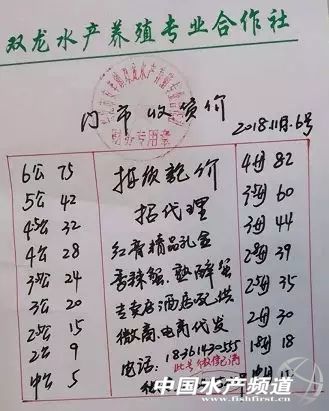 双龙水产养殖专业合作社
门市收货价
财务专用章
2018.11月.6号
6公 75
5公 42
4.5公 32
4公 28
3.5公 24
3公 20
2.5公 15
2公 9
中公 5
招代理
红膏精品礼盒
香辣蟹.熟醉蟹
专卖店酒店配供
微商.电商代发
电话: 18361430555
此号微信已满
4母 82
3.5母 60
3母 44
2.8母 39
2.5母 35
2母 30
1.8母 18
中国水产频道
www.fishfirst.cn